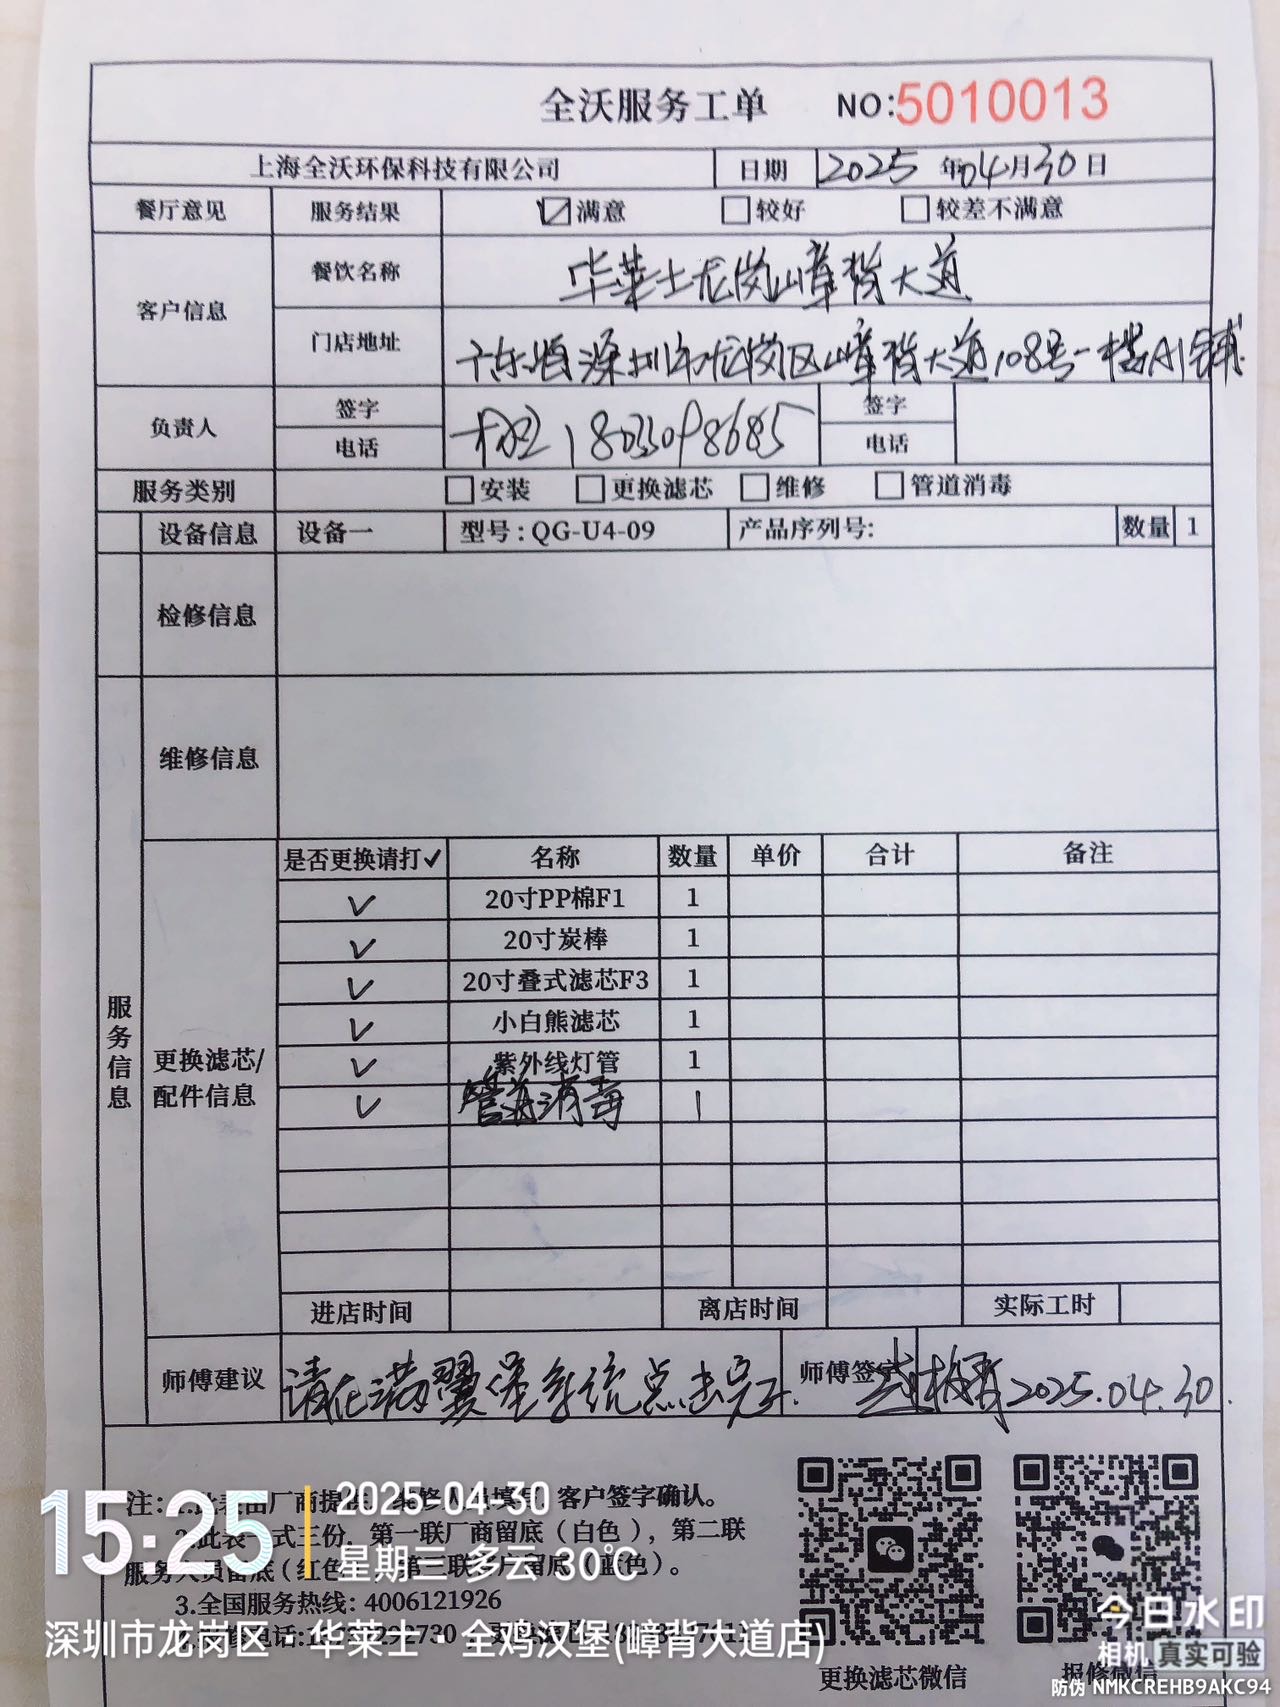 全沃服务工单 NO:5010013
上海全沃环保科技有限公司 日期 2025年04月30日
餐厅意见 服务结果 ☑满意 □较好 □较差不满意
客户信息 餐饮名称 华莱士龙岗嶂背大道
门店地址 广东省深圳市龙岗区嶂背大道108号一楼A1铺
负责人 签字 签字
电话 18033098685 电话
服务类别 □安装 □更换滤芯 □维修 □管道消毒
设备信息 设备一 型号:QG-U4-09 产品序列号: 数量 1
检修信息
维修信息
服务信息
更换滤芯/配件信息
是否更换请打✓ 名称 数量 单价 合计 备注
✓ 20寸PP棉F1 1
✓ 20寸炭棒 1
✓ 20寸叠式滤芯F3 1
✓ 小白熊滤芯 1
✓ 紫外线灯管 1
✓ 管道消毒 1
进店时间 离店时间 实际工时
师傅建议 请在满翼堡系统点击完工. 师傅签字 2025.04.30.
注: 客户签字确认。
2.此表一式三份，第一联厂商留底（白色），第二联
服务人员留底（红色），第三联客户留底（蓝色）。
3.全国服务热线: 4006121926
更换滤芯微信 报修微信
15:25
2025-04-30
星期三 多云 30℃
深圳市龙岗区·华莱士·全鸡汉堡(嶂背大道店)
今日水印
相机 真实可验
防伪 NMKCREHB9AKC94